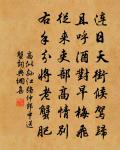 連日天街候駕歸
且呼酒對早梅飛
從來吏部高情別
右手分將老蟹肥
高似孫江仲郎中送
蟹